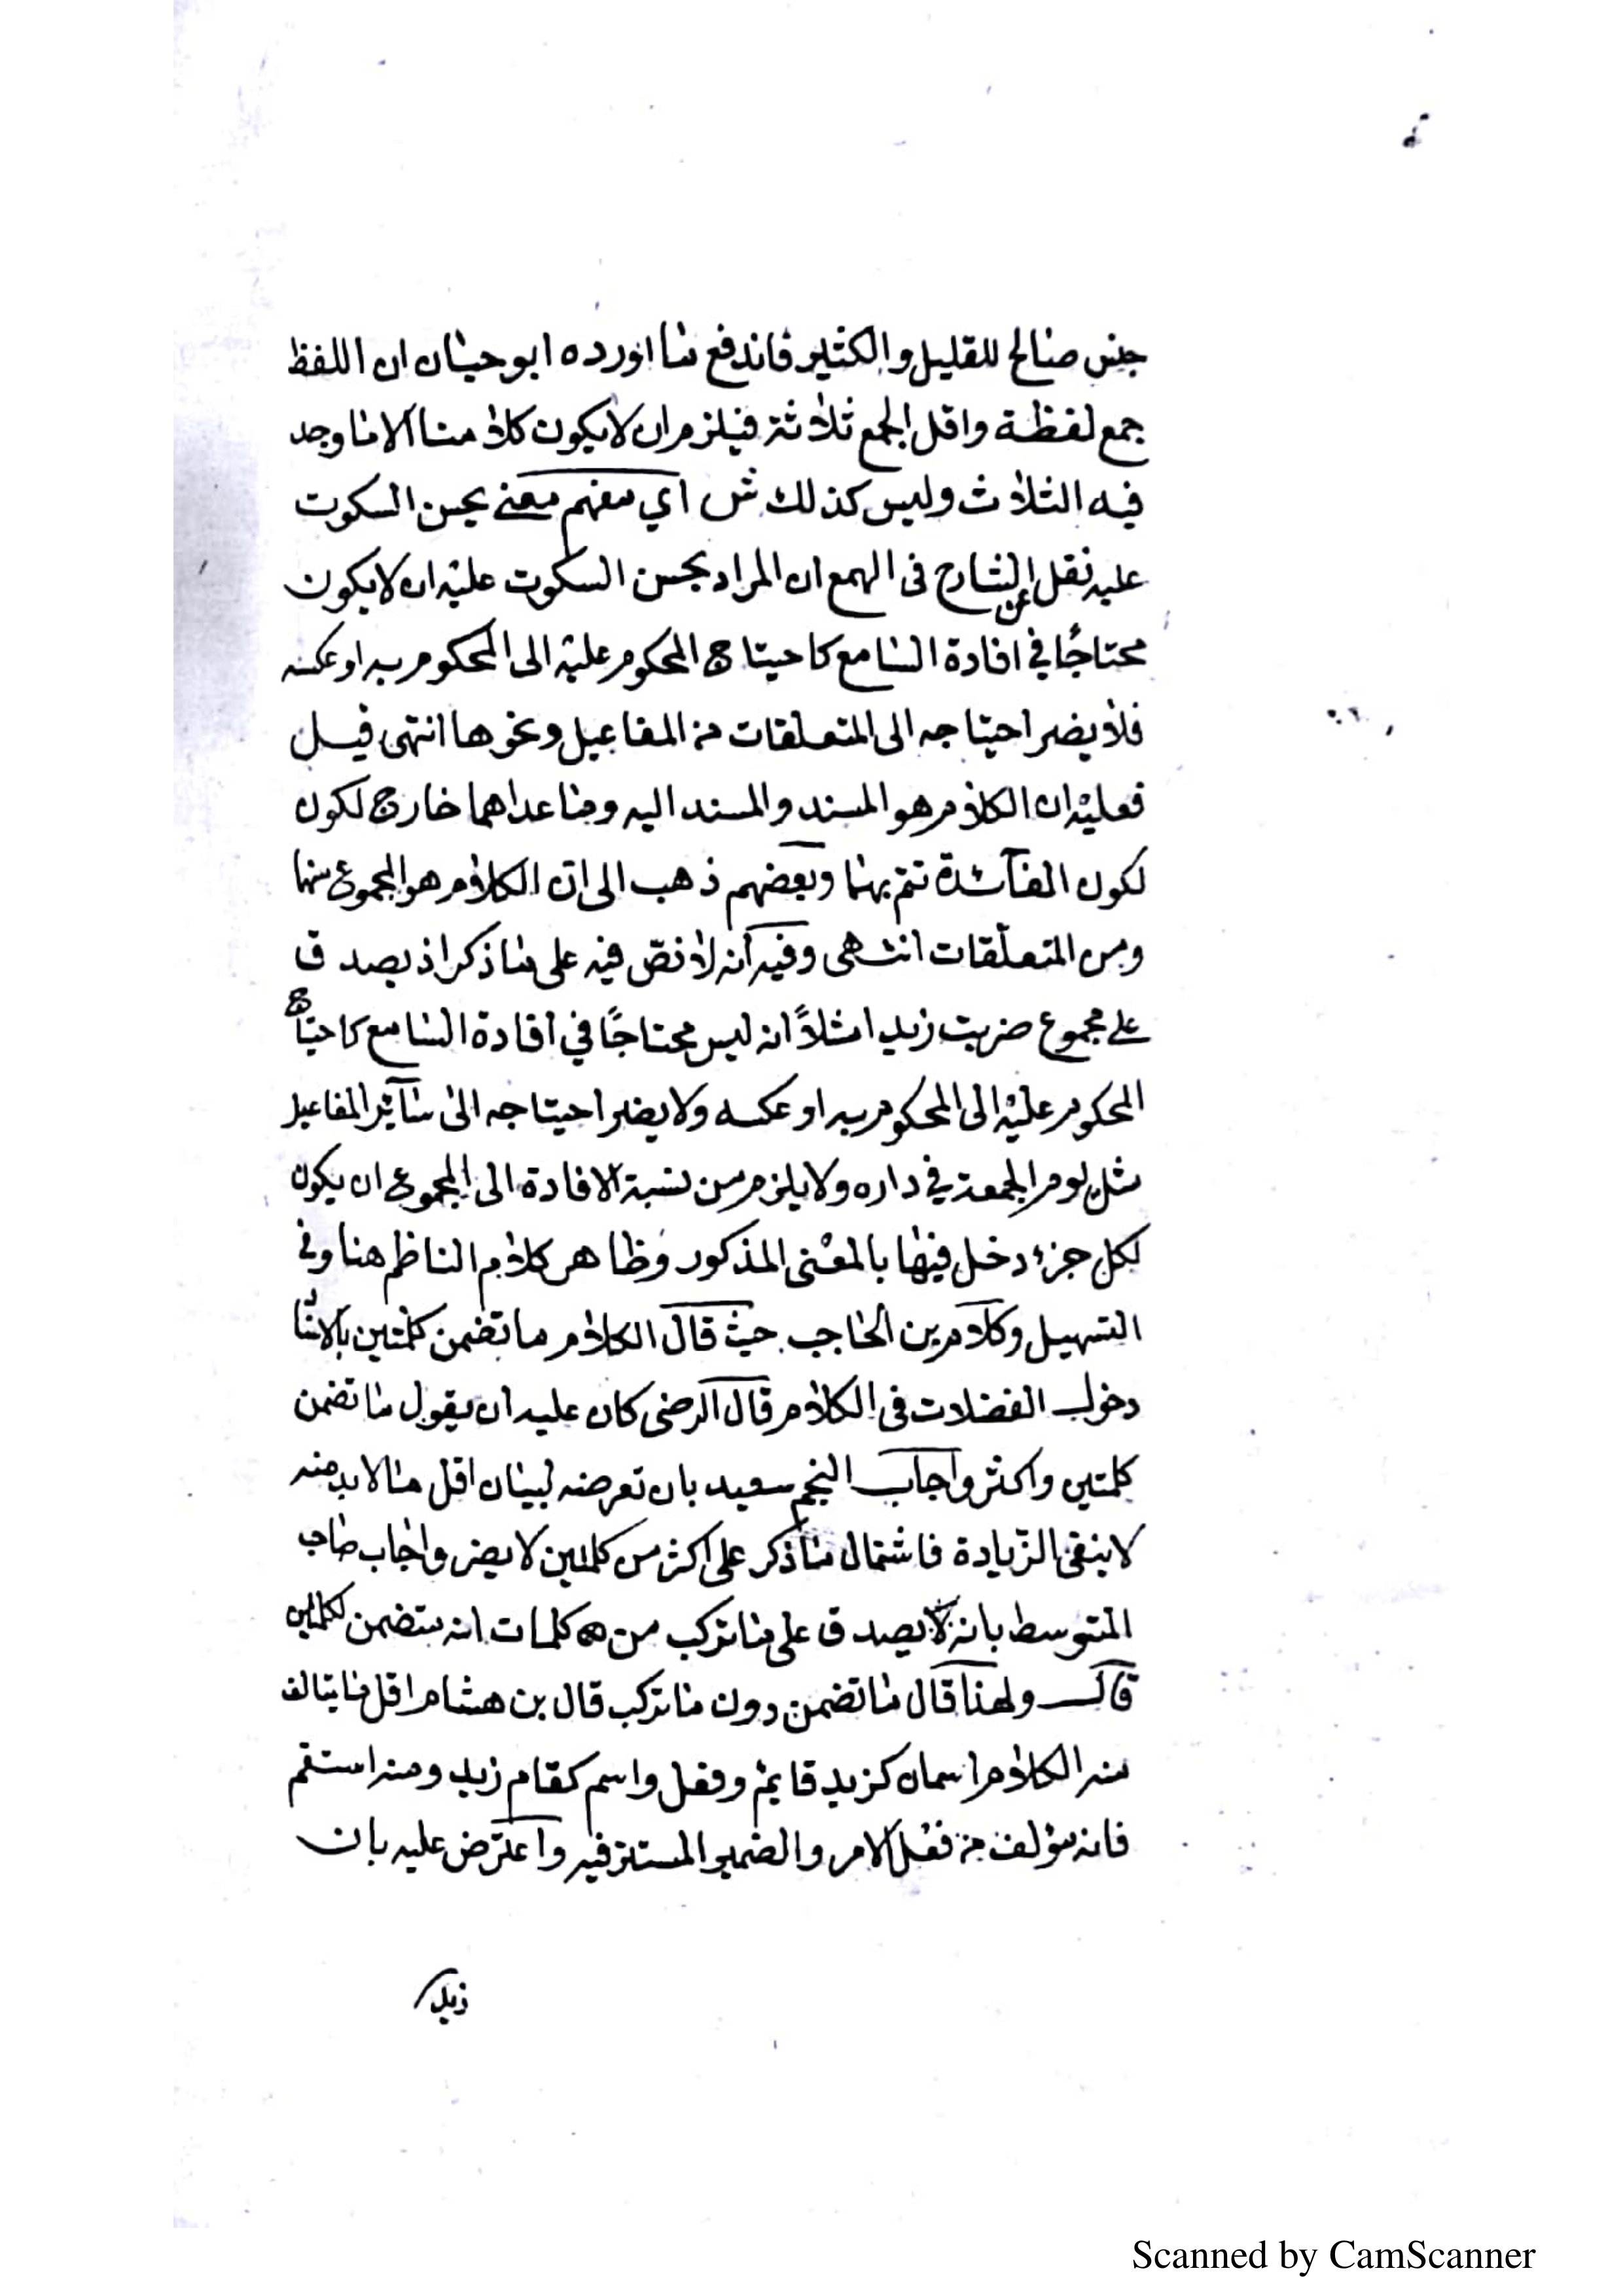 جنس صالح للقليل والكثير فاندفع ما اورده ابو حيان ان اللفظ
جمع لفظة واقل الجمع ثلاثة فيلزم ان لا يكون كلاما الا ما وجد
فيه الثلاث وليس كذلك ش اي مفهم معنى يحسن السكوت
عليه نقل الشارح فى الهمع ان المراد بحسن السكوت عليه ان لا يكون
محتاجًا في افادة السامع كاحتياج المحكوم عليه الى المحكوم به او عكسه
فلا يضر احتياجه الى المتعلقات من المفاعيل ونحوها انتهى قيل
فعليه ان الكلام هو المسند والمسند اليه وما عداهما خارج لكون
لكون الفآئدة تتم بهما وبعضهم ذهب الى ان الكلام هو المجموع منهما
ومن المتعلّقات انتهى وفيه أنه لا نصّ فيه على ما ذكر اذ يصدق
على مجموع ضربت زيدا مثلاً انه ليس محتاجًا في افادة السامع كاحتياج
المحكوم عليه الى المحكوم به او عكسه ولا يضر احتياجه الى سآئر المفاعيل
مثل يوم الجمعة في داره ولا يلزم من نسبة الافادة الى المجموع ان يكون
لكل جزء دخل فيها بالمعنى المذكور وظاهر كلام الناظم هنا وفي
التسهيل وكلام بن الحاجب حيث قال الكلام ما تضمن كلمتين بالاسنا
دخول الفضلات فى الكلام قال الرضى كان عليه ان يقول ما تضمن
كلمتين واكثر واجاب النجم سعيد بان تعرضه لبيان اقل ما لا بد منه
لا ينفى الزيادة فاشتمال ما ذكر على اكثر من كلمتين لا يضر واجاب صاحب
المتوسط بانه لا يصدق على ما تركب من كلمات انه يتضمن لكلمتين
قال ولهذا قال ما تضمن دون ما تركب قال بن هشام اقل ما يتالف
منه الكلام اسمان كزيد قايم وفعل واسم كقام زيد ومنه استقم
فانه مؤلف من فعل الامر والضمير المستتر فيه واعترض عليه بان
زيد
Scanned by CamScanner